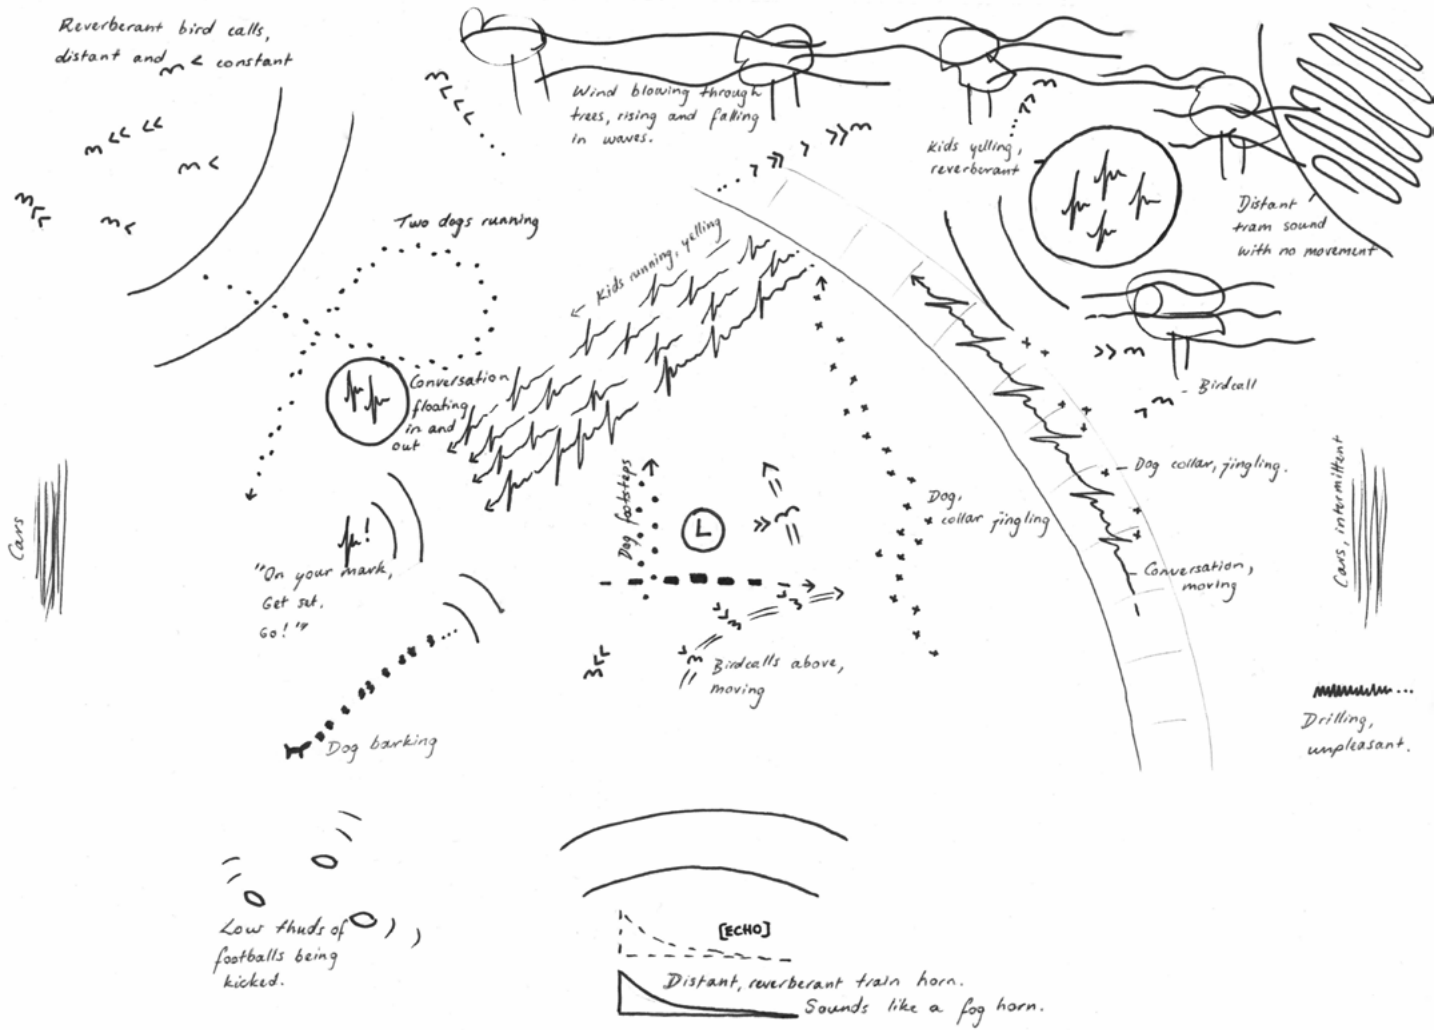 Reverberant bird calls,
distant and constant
Wind blowing through
trees, rising and falling
in waves.
Kids yelling,
reverberant
Distant
tram sound
with no movement
Two dogs running
Kids running, yelling
Conversation
floating
in and
out
Birdcall
Dog collar, jingling.
Dog,
collar jingling
Dog footsteps
L
Cars
Cars, intermittent
"On your mark,
Get set,
Go!"
Conversation,
moving
Birdcalls above,
moving
Dog barking
Drilling,
unpleasant.
Low thuds of
footballs being
kicked.
[ECHO]
Distant, reverberant train horn.
Sounds like a fog horn.